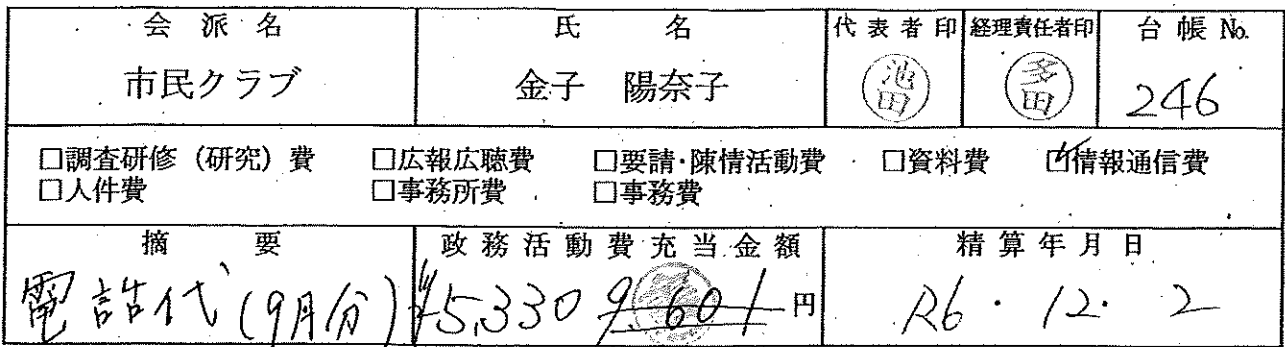 会派名 氏名 代表者印 経理責任者印 台帳 No.
市民クラブ 金子 陽奈子 池田 多田 246
□調査研修（研究）費 □広報広聴費 □要請・陳情活動費 □資料費 ☑情報通信費
□人件費 □事務所費 □事務費
摘要 政務活動費充当金額 精算年月日
電話代(9月分) ¥5,330 9,601円 R6・12・2